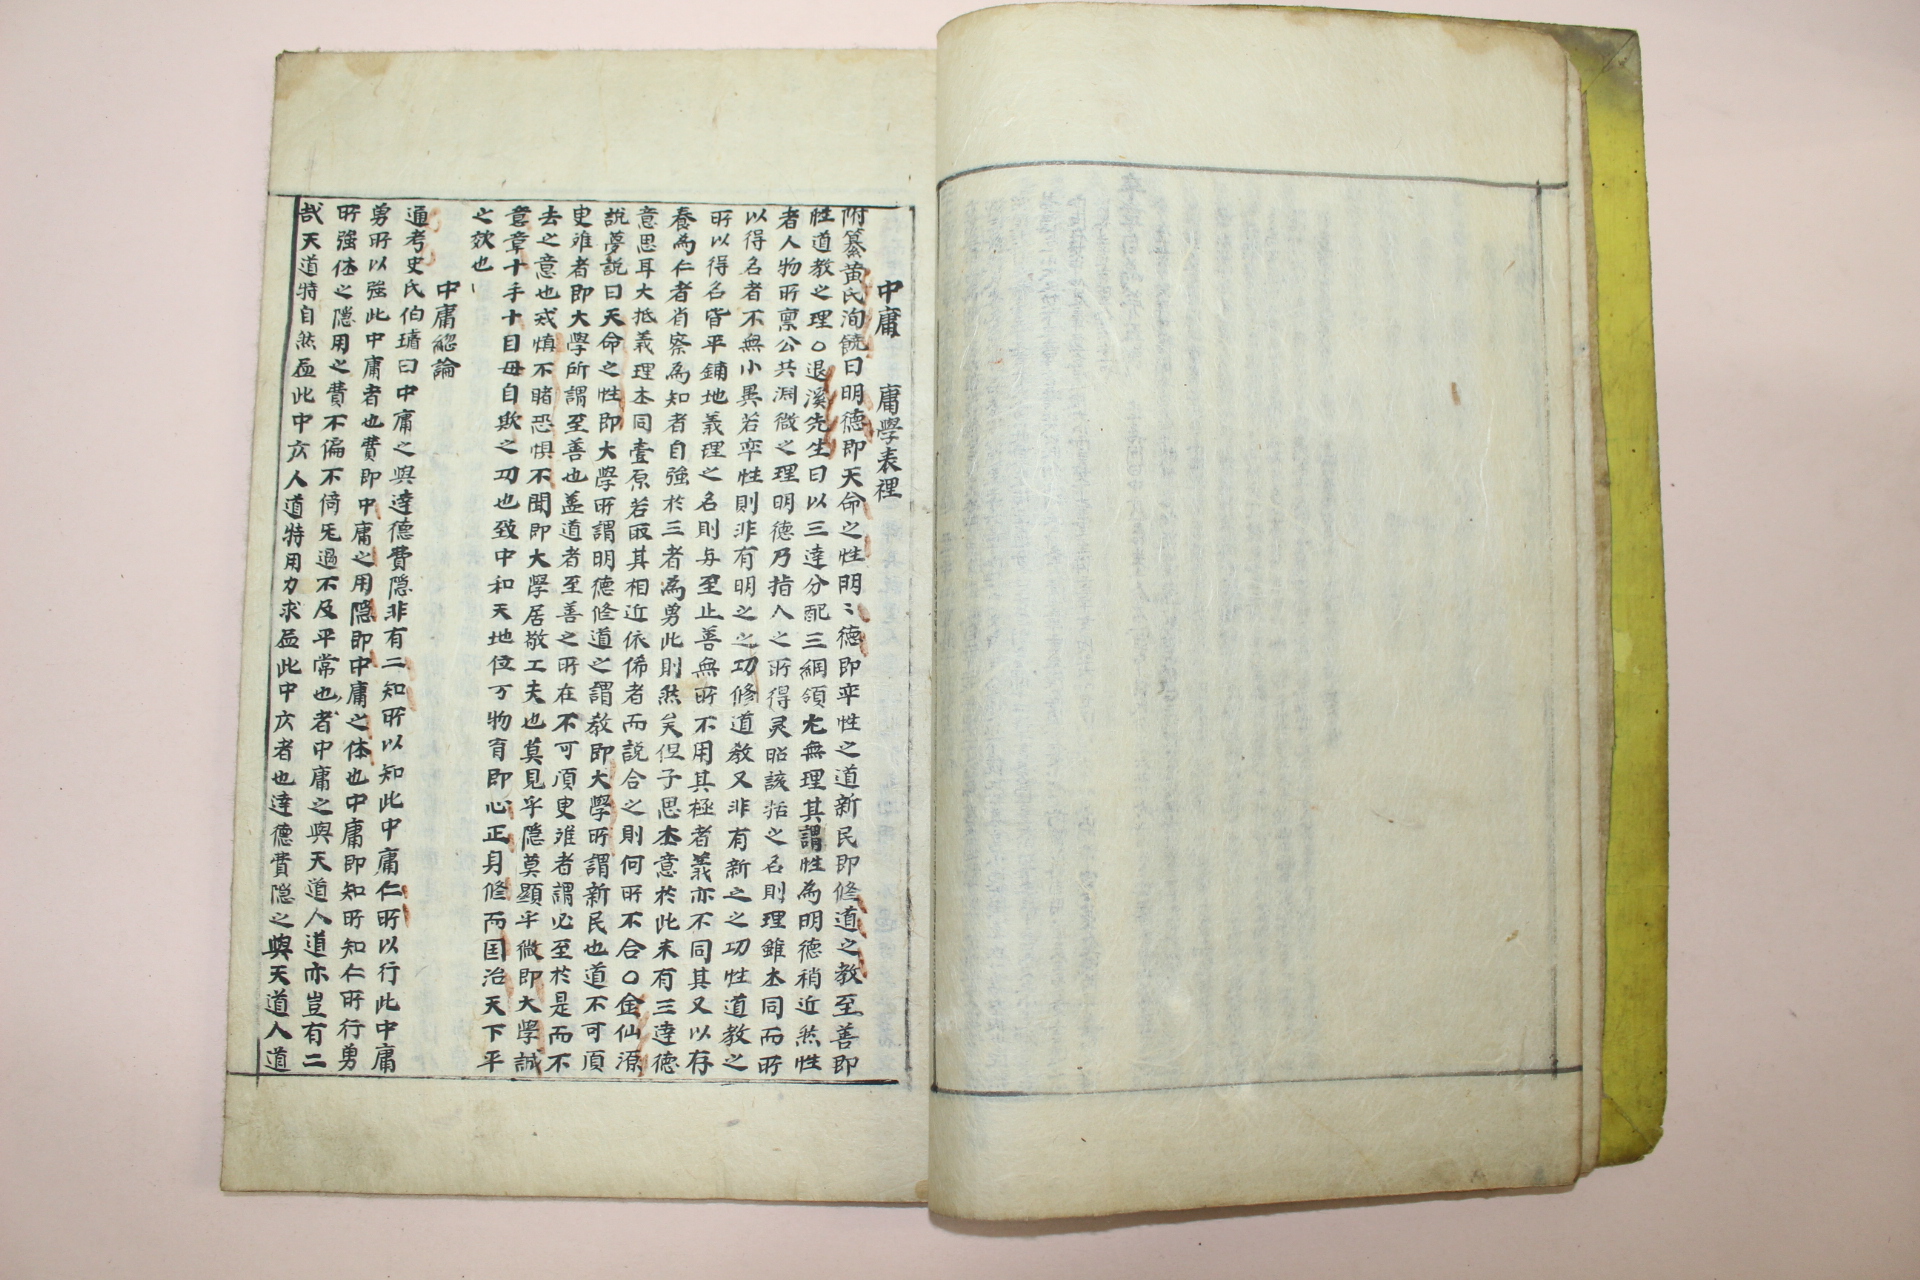 中庸 庸學表裡
附纂黄氏洵饒曰明德即天命之性明〻德即率性之道新民即修道之教至善即
性道教之理○退溪先生曰以三達分配三綱領尤無理其謂性為明德稍近然性
者人物所禀公共渊微之理明德乃指人之所得灵昭該括之名則理雖本同而所
以得名者不無小異若率性則非有明之之功修道教又非有新之之功性道教之
所以得名皆平鋪地義理之名則与至止善無所不用其極者義亦不同其又以存
養為仁者省察為知者自強於三者為勇此則然矣但子思本意於此未有三達德
意思耳大抵義理本同壹原若取其相近依俙者而說合之則何所不合○金仙源
說夢說曰天命之性即大學所謂明德修道之謂教即大學所謂新民也道不可須
臾难者即大學所謂至善也盖道者至善之所在不可須臾难者謂必至於是而不
去之意也戒慎不睹恐惧不聞即大學居敬工夫也莫見乎隠莫顯乎微即大學誠
意章十手十目毋自欺之功也致中和天地位万物育即心正身修而国治天下平
之效也
中庸總論
通考史氏伯璿曰中庸之與達德費隠非有二知所以知此中庸仁所以行此中庸
勇所以強此中庸者也費即中庸之用隠即中庸之体也中庸即知所知仁所行勇
所強体之隠用之費不偏不倚旡過不及平常也者中庸之與天道人道亦豈有二
哉天道特自然盡此中庸人道特用力求盡此中庸者也達德費隠之與天道人道